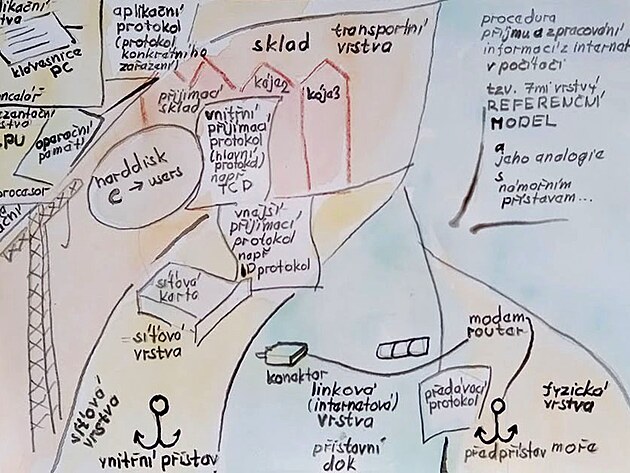 klávesnice
PC
aplikační
protokol
(protokol
konkrétního
zařazení)
sklad
transportní
vrstva
kója2
kója3
přijímací
sklad
vnitřní
přijímací
protokol
(hlavní
protokol)
např
TCD
operační
paměť
procesor
harddisk
C → users
vnější
přijímací
protokol
např
IDprotokol
síťová
karta
síťová
vrstva
síťová
vrstva
vnitřní přístav
konektor
linková
(internetová)
vrstva
přístavní
dok
modem
router
předávací
protokol
fyzická
vrstva
předpřístav moře
procedura
příjmu a zpracování
informací z internet
v počítači
tzv. 7mi vrstvý
REFERENČNÍ
MODEL
a
jeho analogie
s
námořním
přístavam...